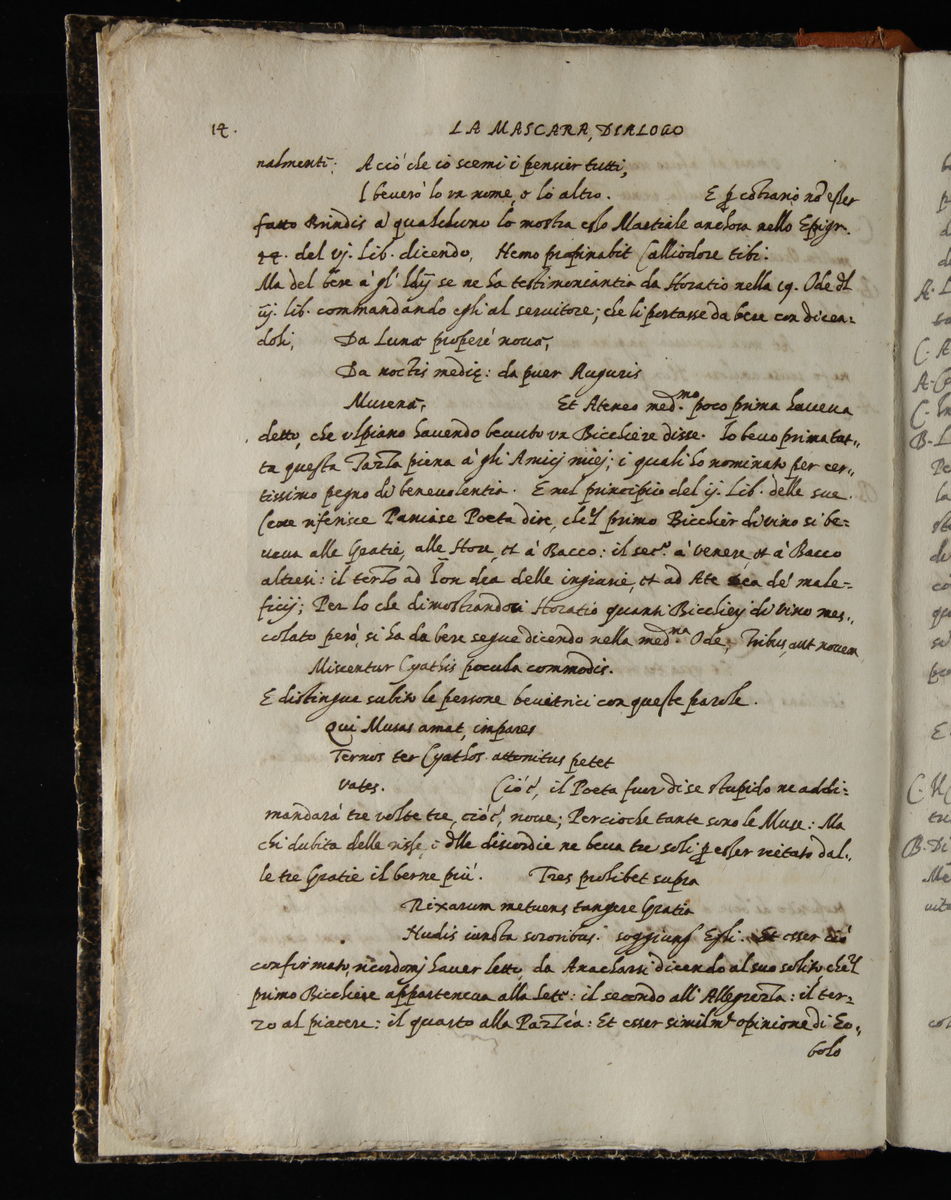 14. LA MASCARA, DIALOGO
nalmente; Acciò che io scemi i pensier tutti,
I beverò lo un nome, o lo altro. E p̱ cõtrario nõ esser
fatto Brindis à qualcheduno lo mostra esso Martiale anchora nello Epigr.
44. del vj. Lib. dicendo, Nemo propinabit Calliodore tibi.
Ma del bere à gl' Idij se ne ha testimoniantia da Horatio nella 19. Ode dl
iij. lib. commandando egli al servitore; che li portasse da bere con dicen-
doli, Da Lunæ properè novæ,
Da noctis medię: da puer Auguris
Murenæ, Et Ateneo med.mo poco prima haveva
detto, che Ulpiano havendo bevuto un Bicchiere disse. Io bevo prima tut-
ta questa Tazza piena à gli Amicj miej; i quali ho nominato per cer-
tissimo pegno di benevolentia. E nel principio del ij. Lib. delle sue
Cene riferisce Paniase Poeta dire, che'l primo Bicchier di vino si be-
veva alle Gratie, alle Hore, et à Bacco: il sec.º à Venere, et à Bacco
altresi: il terzo ad dea delle ingiurie, et ad Ate dea de' male-
ficij; Per lo che dimostrandoci Horatio quanti Bicchierj di vino mes-
colato però, si ha da bere segue dicendo nella med.ma Ode; Tribus, aut novem
Miscentur Cyathis pocula commodis.
E distingue subito le persone bevitrici con queste parole.
Qui Musas amat, impares
Ternos ter Cyathos attonitus petet
Vates. Ciò è, il Poeta fuor di se stupido ne addi-
mandarà tre volte tre, ciò è, nove; Percioche tante sono le Muse: Ma
chi dubita delle risse, ò dlle discordie ne beva tre soli p̱ esser vietato dal-
le tre Gratie il berne più. Tres prohibet supra
Rixarum metuens tangere Gratia
Nudis iuncta sororibus. soggiunse Egli. Et esser ciò
confirmato, ricordomj haver letto, da Anacharsi dicendo al suo solito, che'l
primo Bicchiere apparteneva alla sete: il secondo all' Allegrezza: il ter-
zo al piacere: il quarto alla Pazzia: Et esser similmte opinione di Eo-
bolo